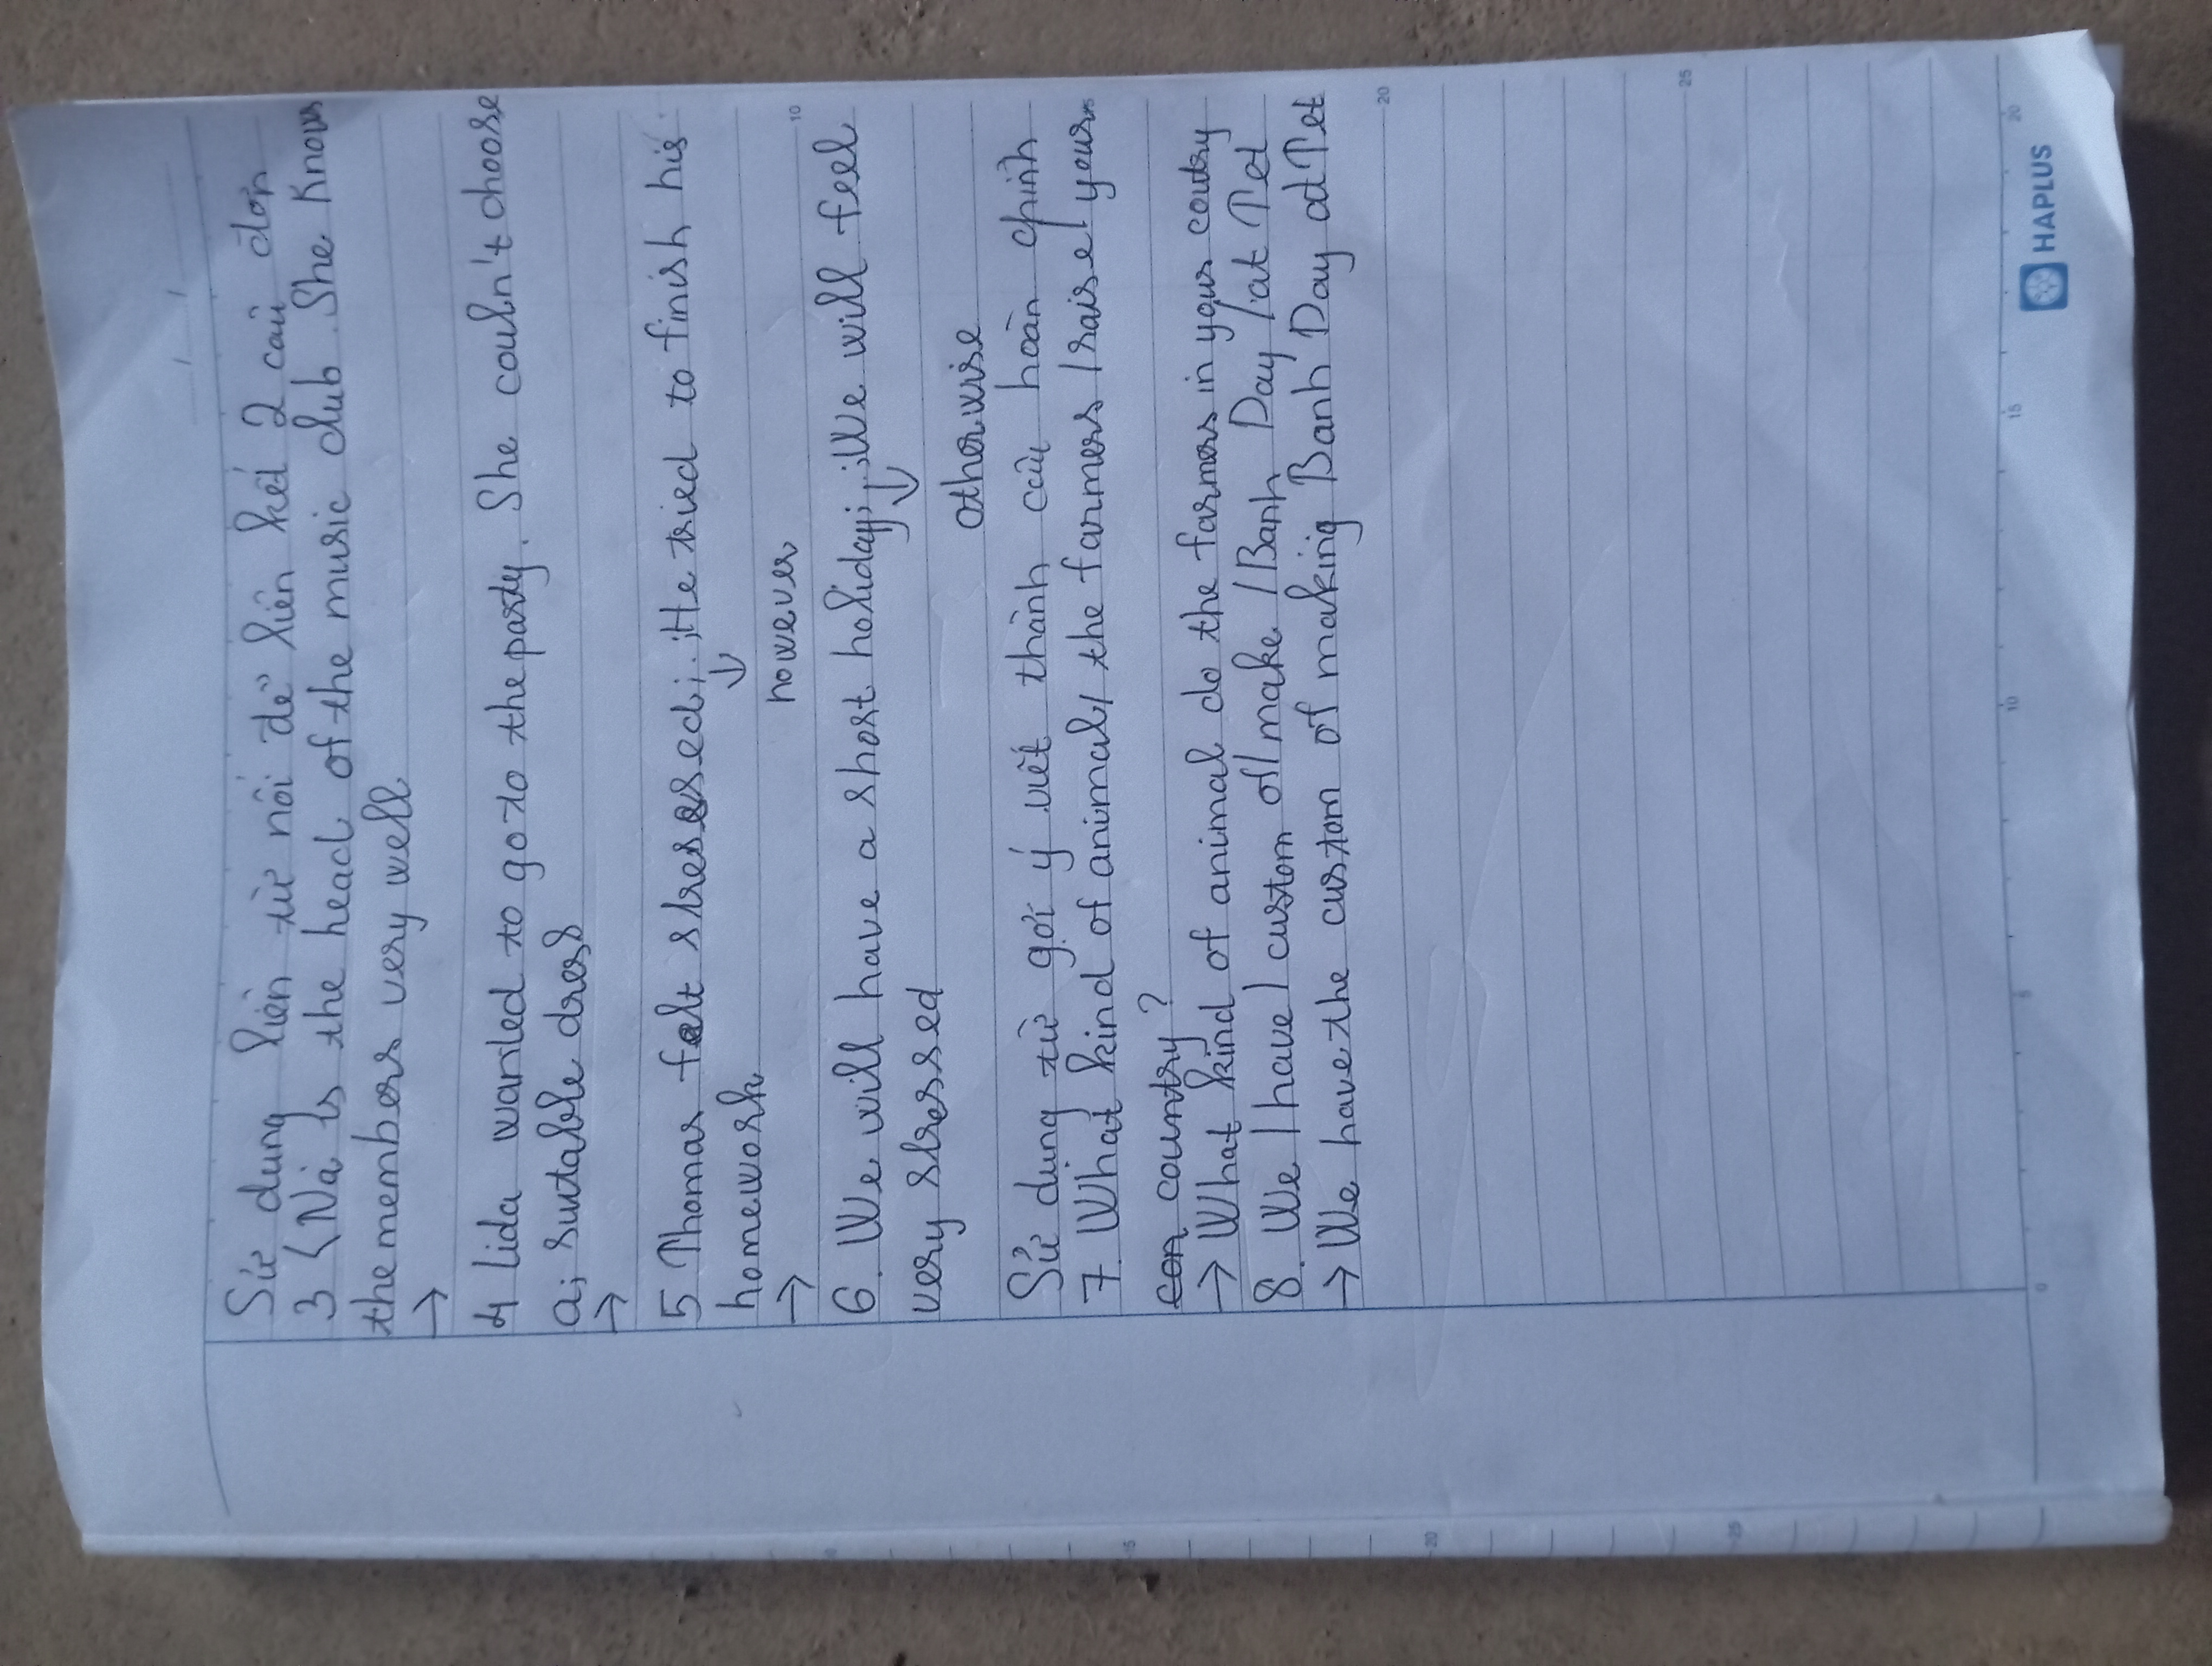 Sử dụng liên từ nối để liên kết 2 câu đơn
3 Na is the head of the music club. She Knows
the members very well
→
4 Lida wanted to go to the party. She couln't choose
a; suitable dress
→
5 Thomas felt stressed; ;He tried to finish his
homework ↓
→ however
6. We will have a short holiday; ;We will feel
↓
very stressed
otherwise
Sử dụng từ gợi ý viết thành câu hoàn chỉnh
7. What kind of animal / the farmers / raise / your
country?
→ What kind of animal do the farmers in your coutry
8. We / have / custom of / make / Banh Day / at Tet
→ We have the custom of making Banh Day at Tet
10
20
25
0
5
10
15
20
HAPLUS
15
20
25